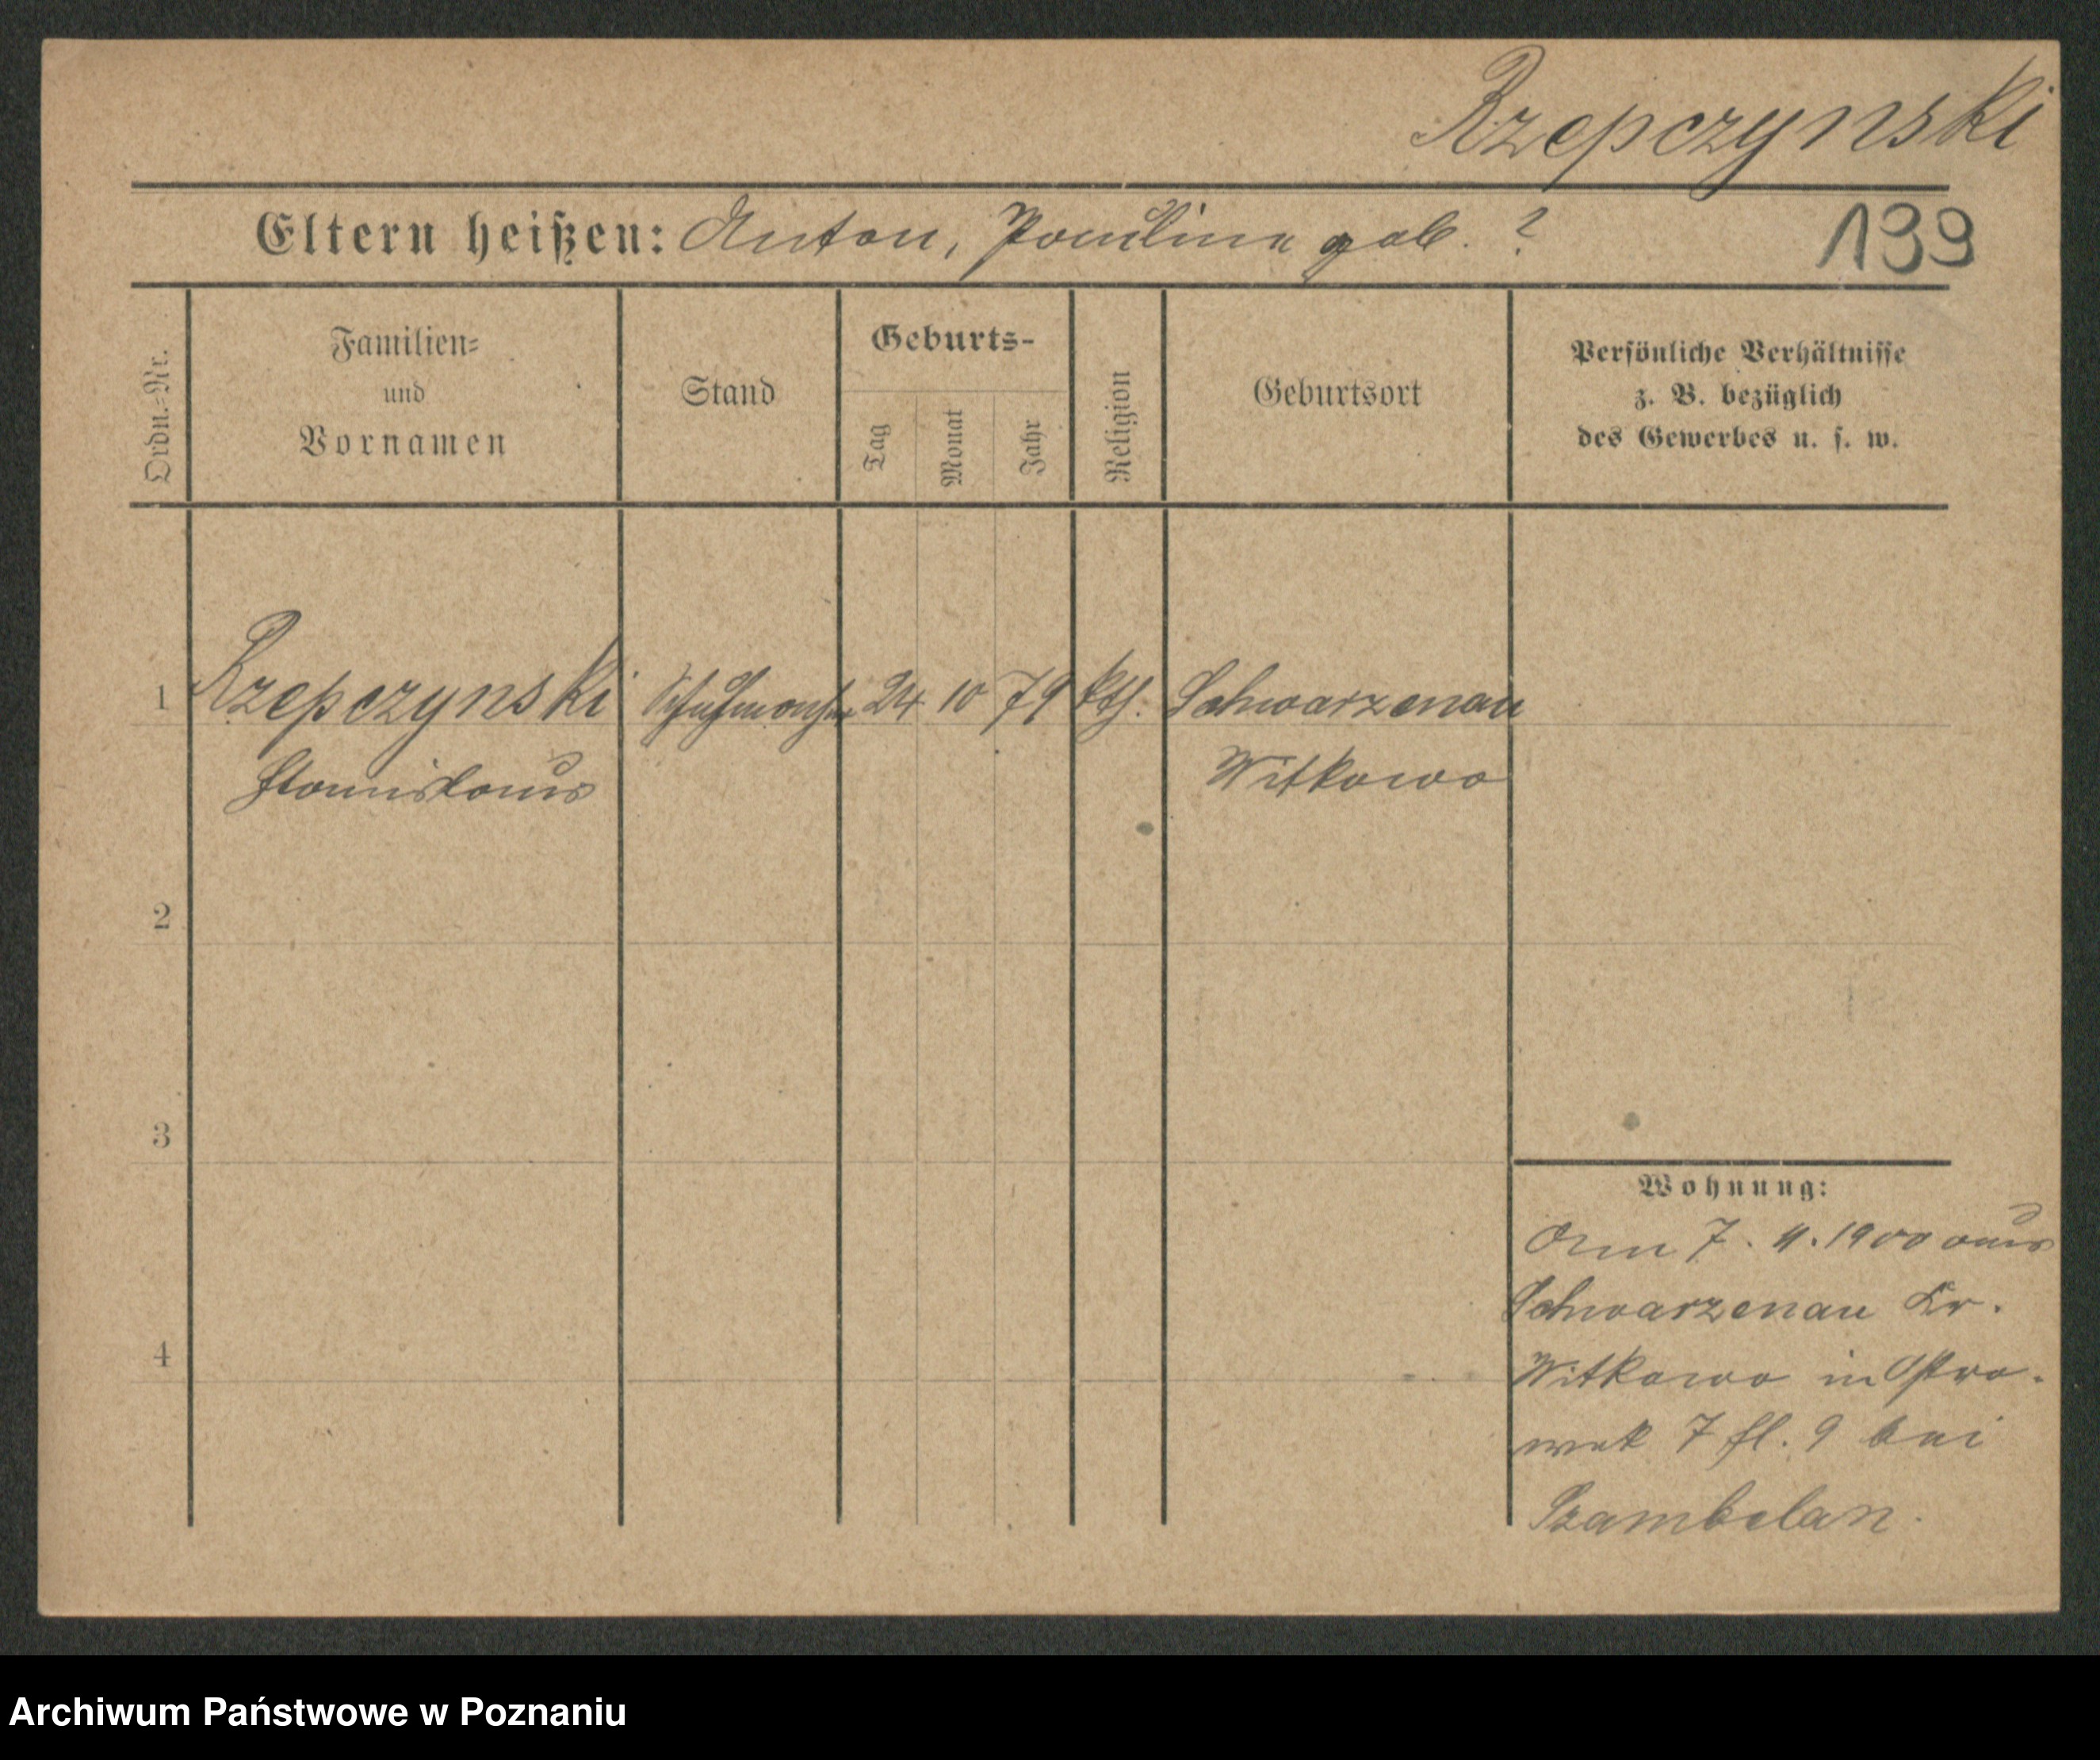 Rzepczynski
Eltern heißen: Anton, Pauline geb. ?
139
Ordn.=Nr.
Familien=
und
Vornamen
Stand
Geburts-
Tag
Monat
Jahr
Religion
Geburtsort
Persönliche Verhältnisse
z. B. bezüglich
des Gewerbes u. s. w.
1 Rzepczynski Schuhmacher 24 10 79 kth. Schwarzenau
Stanislaus Witkowo
2
3
4
Wohnung:
Am 7. 4. 1900 aus
Schwarzenau Kr.
Witkowo in Ostro-
wek 7 fl. 9 bei
Szambelan.
Archiwum Państwowe w Poznaniu